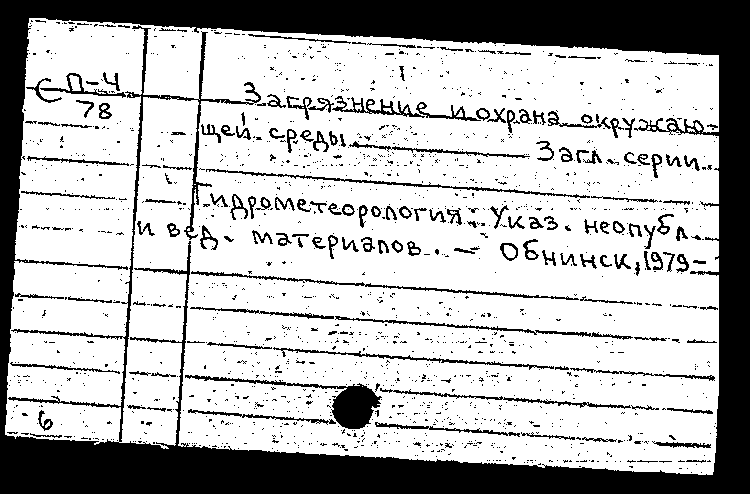 С П-4
78
Загрязнение и охрана окружаю-
щей среды. Загл. серии.
Гидрометеорология: Указ. неопубл.
и вед. материалов. — Обнинск, 1979-
6